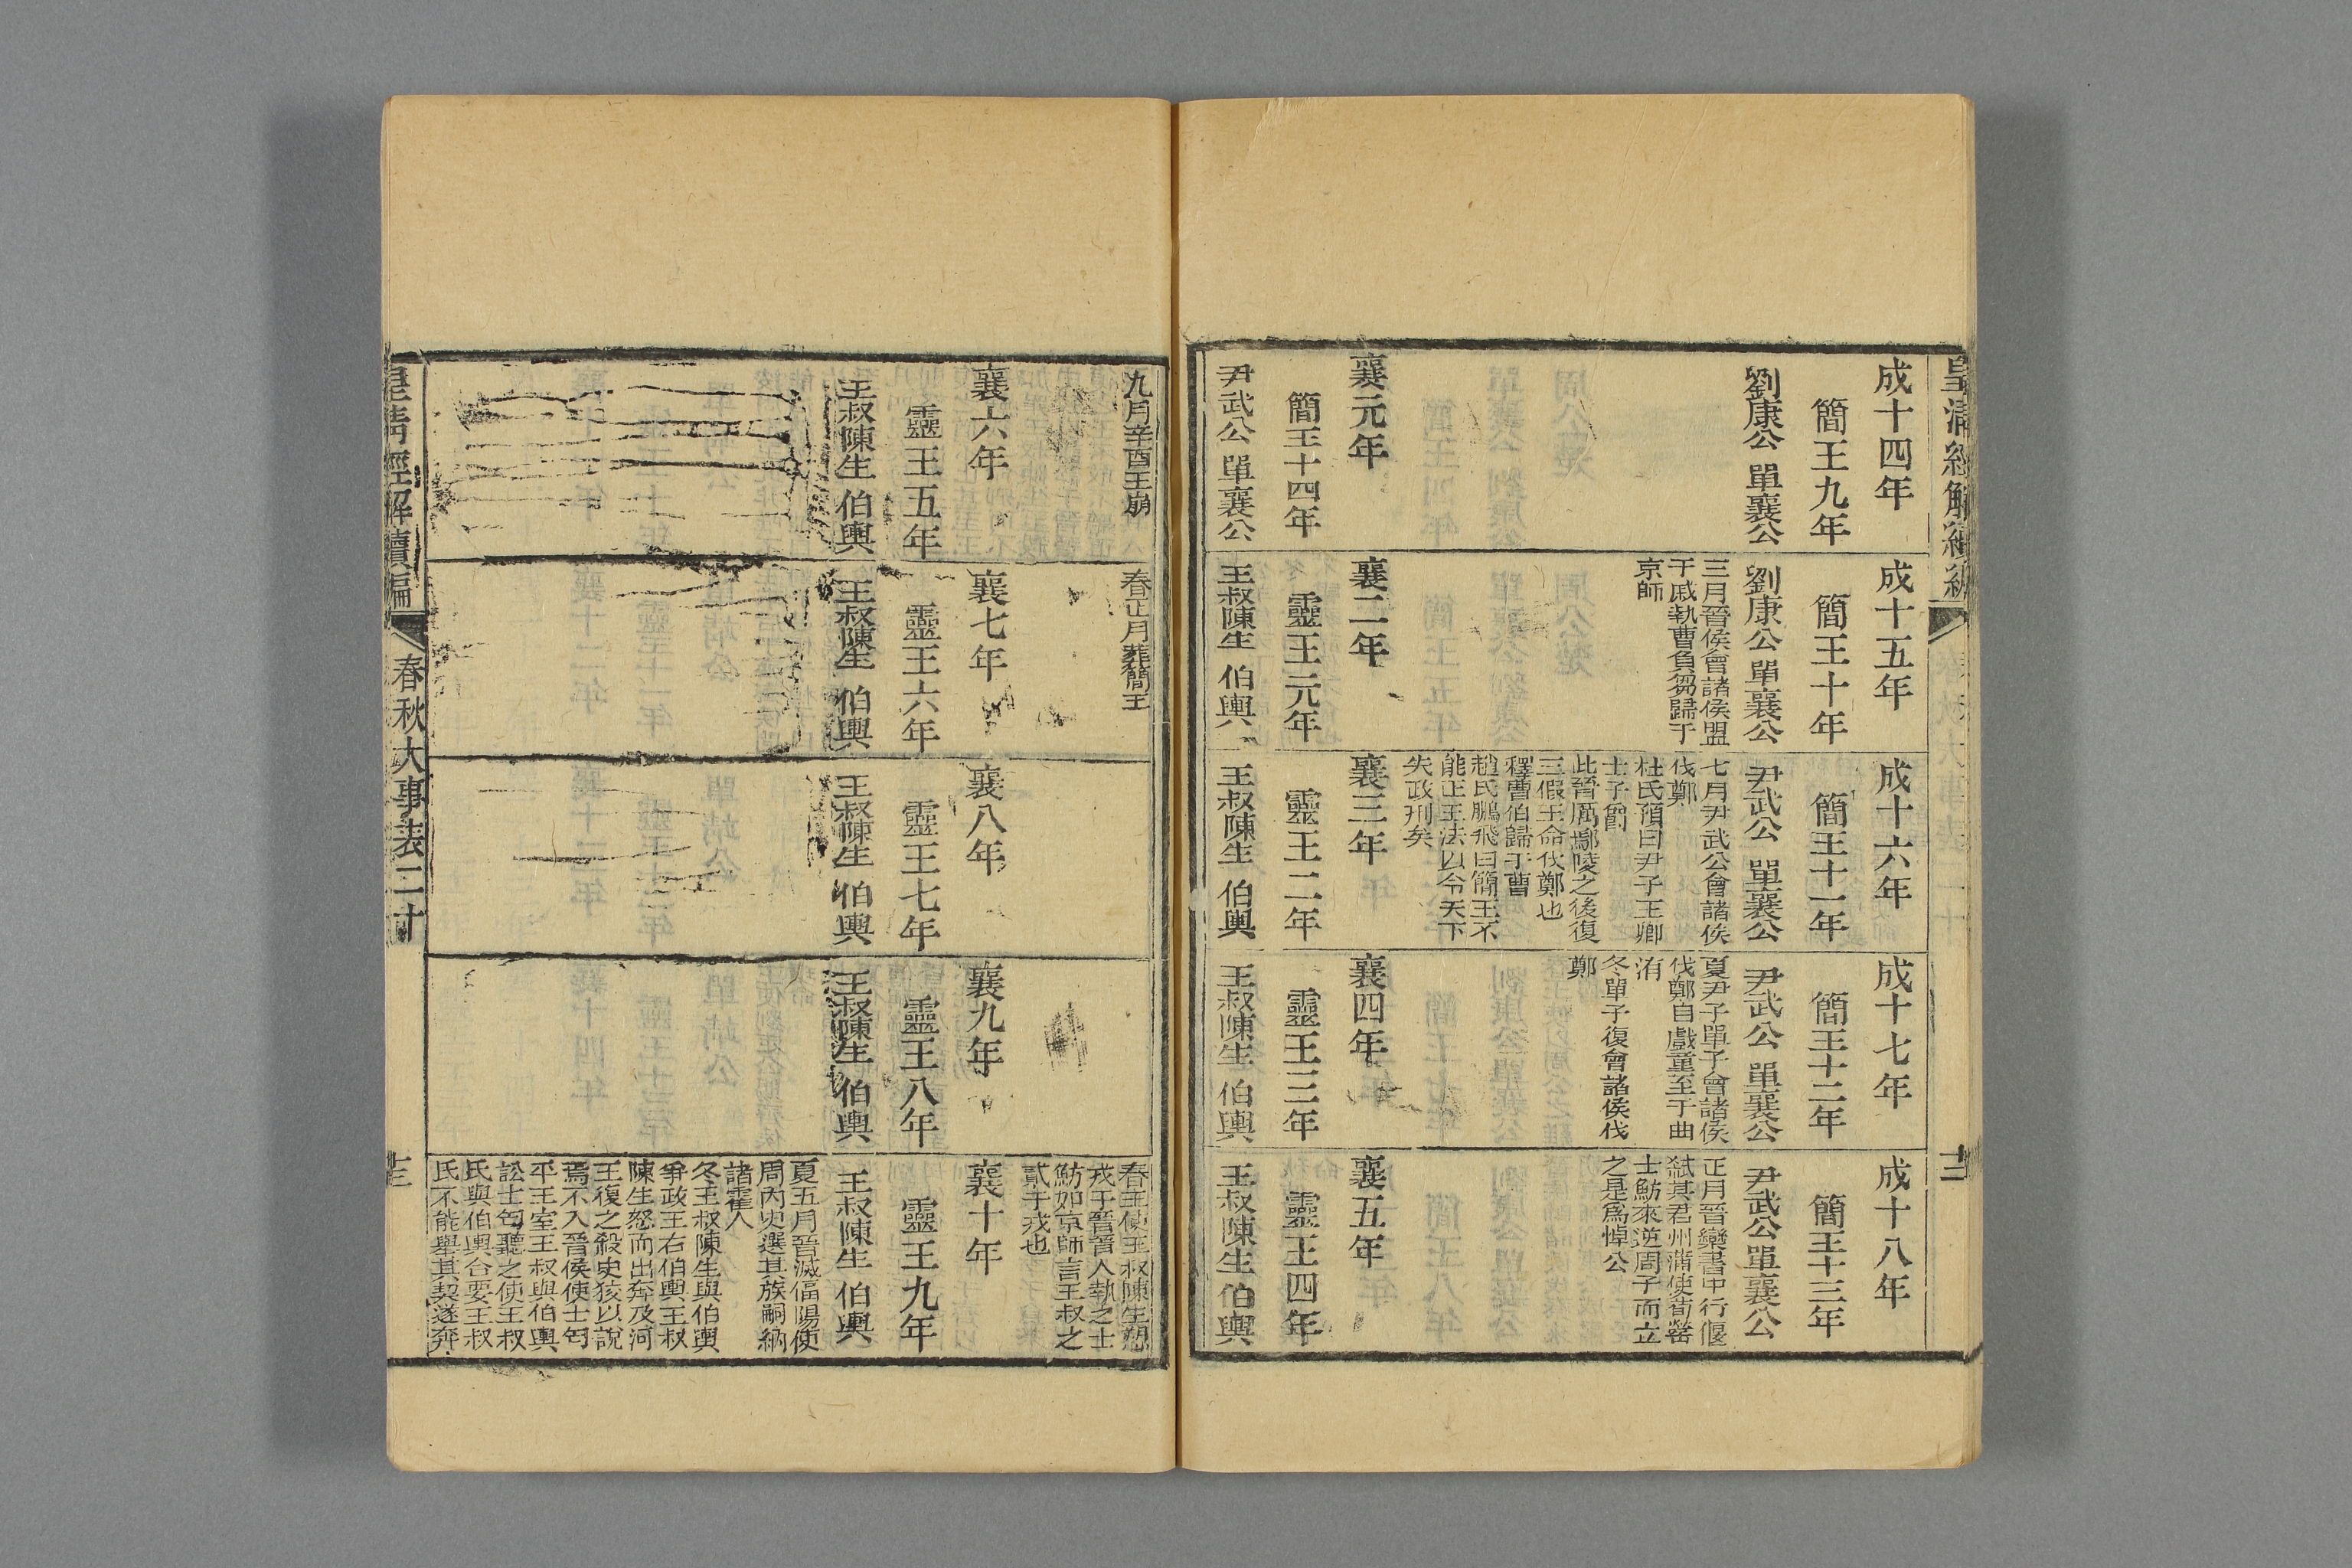 皇清經解續編
十二
成十四年
簡王九年
劉康公 單襄公
成十五年
簡王十年
劉康公 單襄公
三月晉侯會諸侯盟
于戚執曹負芻歸于
京師
成十六年
簡王十一年
尹武公 單襄公
七月尹武公會諸侯
伐鄭
杜氏預曰尹子王卿
士子爵
此晉厲鄢陵之後復
三假王命伐鄭也
釋曹伯歸于曹
趙氏鵬飛曰簡王不
能正王法以令天下
失政刑矣
成十七年
簡王十二年
尹武公 單襄公
夏尹子單子會諸侯
伐鄭自戲童至于曲
洧
冬單子復會諸侯伐
鄭
成十八年
簡王十三年
尹武公 單襄公
正月晉欒書中行偃
弒其君州蒲使荀罃
士魴來逆周子而立
之是爲悼公
襄元年
簡王十四年
尹武公 單襄公
襄二年
靈王元年
王叔陳生 伯輿
襄三年
靈王二年
王叔陳生 伯輿
襄四年
靈王三年
王叔陳生 伯輿
襄五年
靈王四年
王叔陳生 伯輿
九月辛酉王崩
春正月葬簡王
春王使王叔陳生愬
戎于晉晉人執之士
魴如京師言王叔之
貳于戎也
襄六年
靈王五年
王叔陳生 伯輿
襄七年
靈王六年
王叔陳生 伯輿
襄八年
靈王七年
王叔陳生 伯輿
襄九年
靈王八年
王叔陳生 伯輿
襄十年
靈王九年
王叔陳生 伯輿
夏五月晉滅偪陽使
周內史選其族嗣納
諸霍人
冬王叔陳生與伯輿
爭政王右伯輿王叔
陳生怒而出奔及河
王復之殺史狡以說
焉不入晉侯使士匄
平王室王叔與伯輿
訟士匄聽之使王叔
氏與伯輿合要王叔
氏不能舉其契遂奔
皇清經解續編
春秋大事表二十